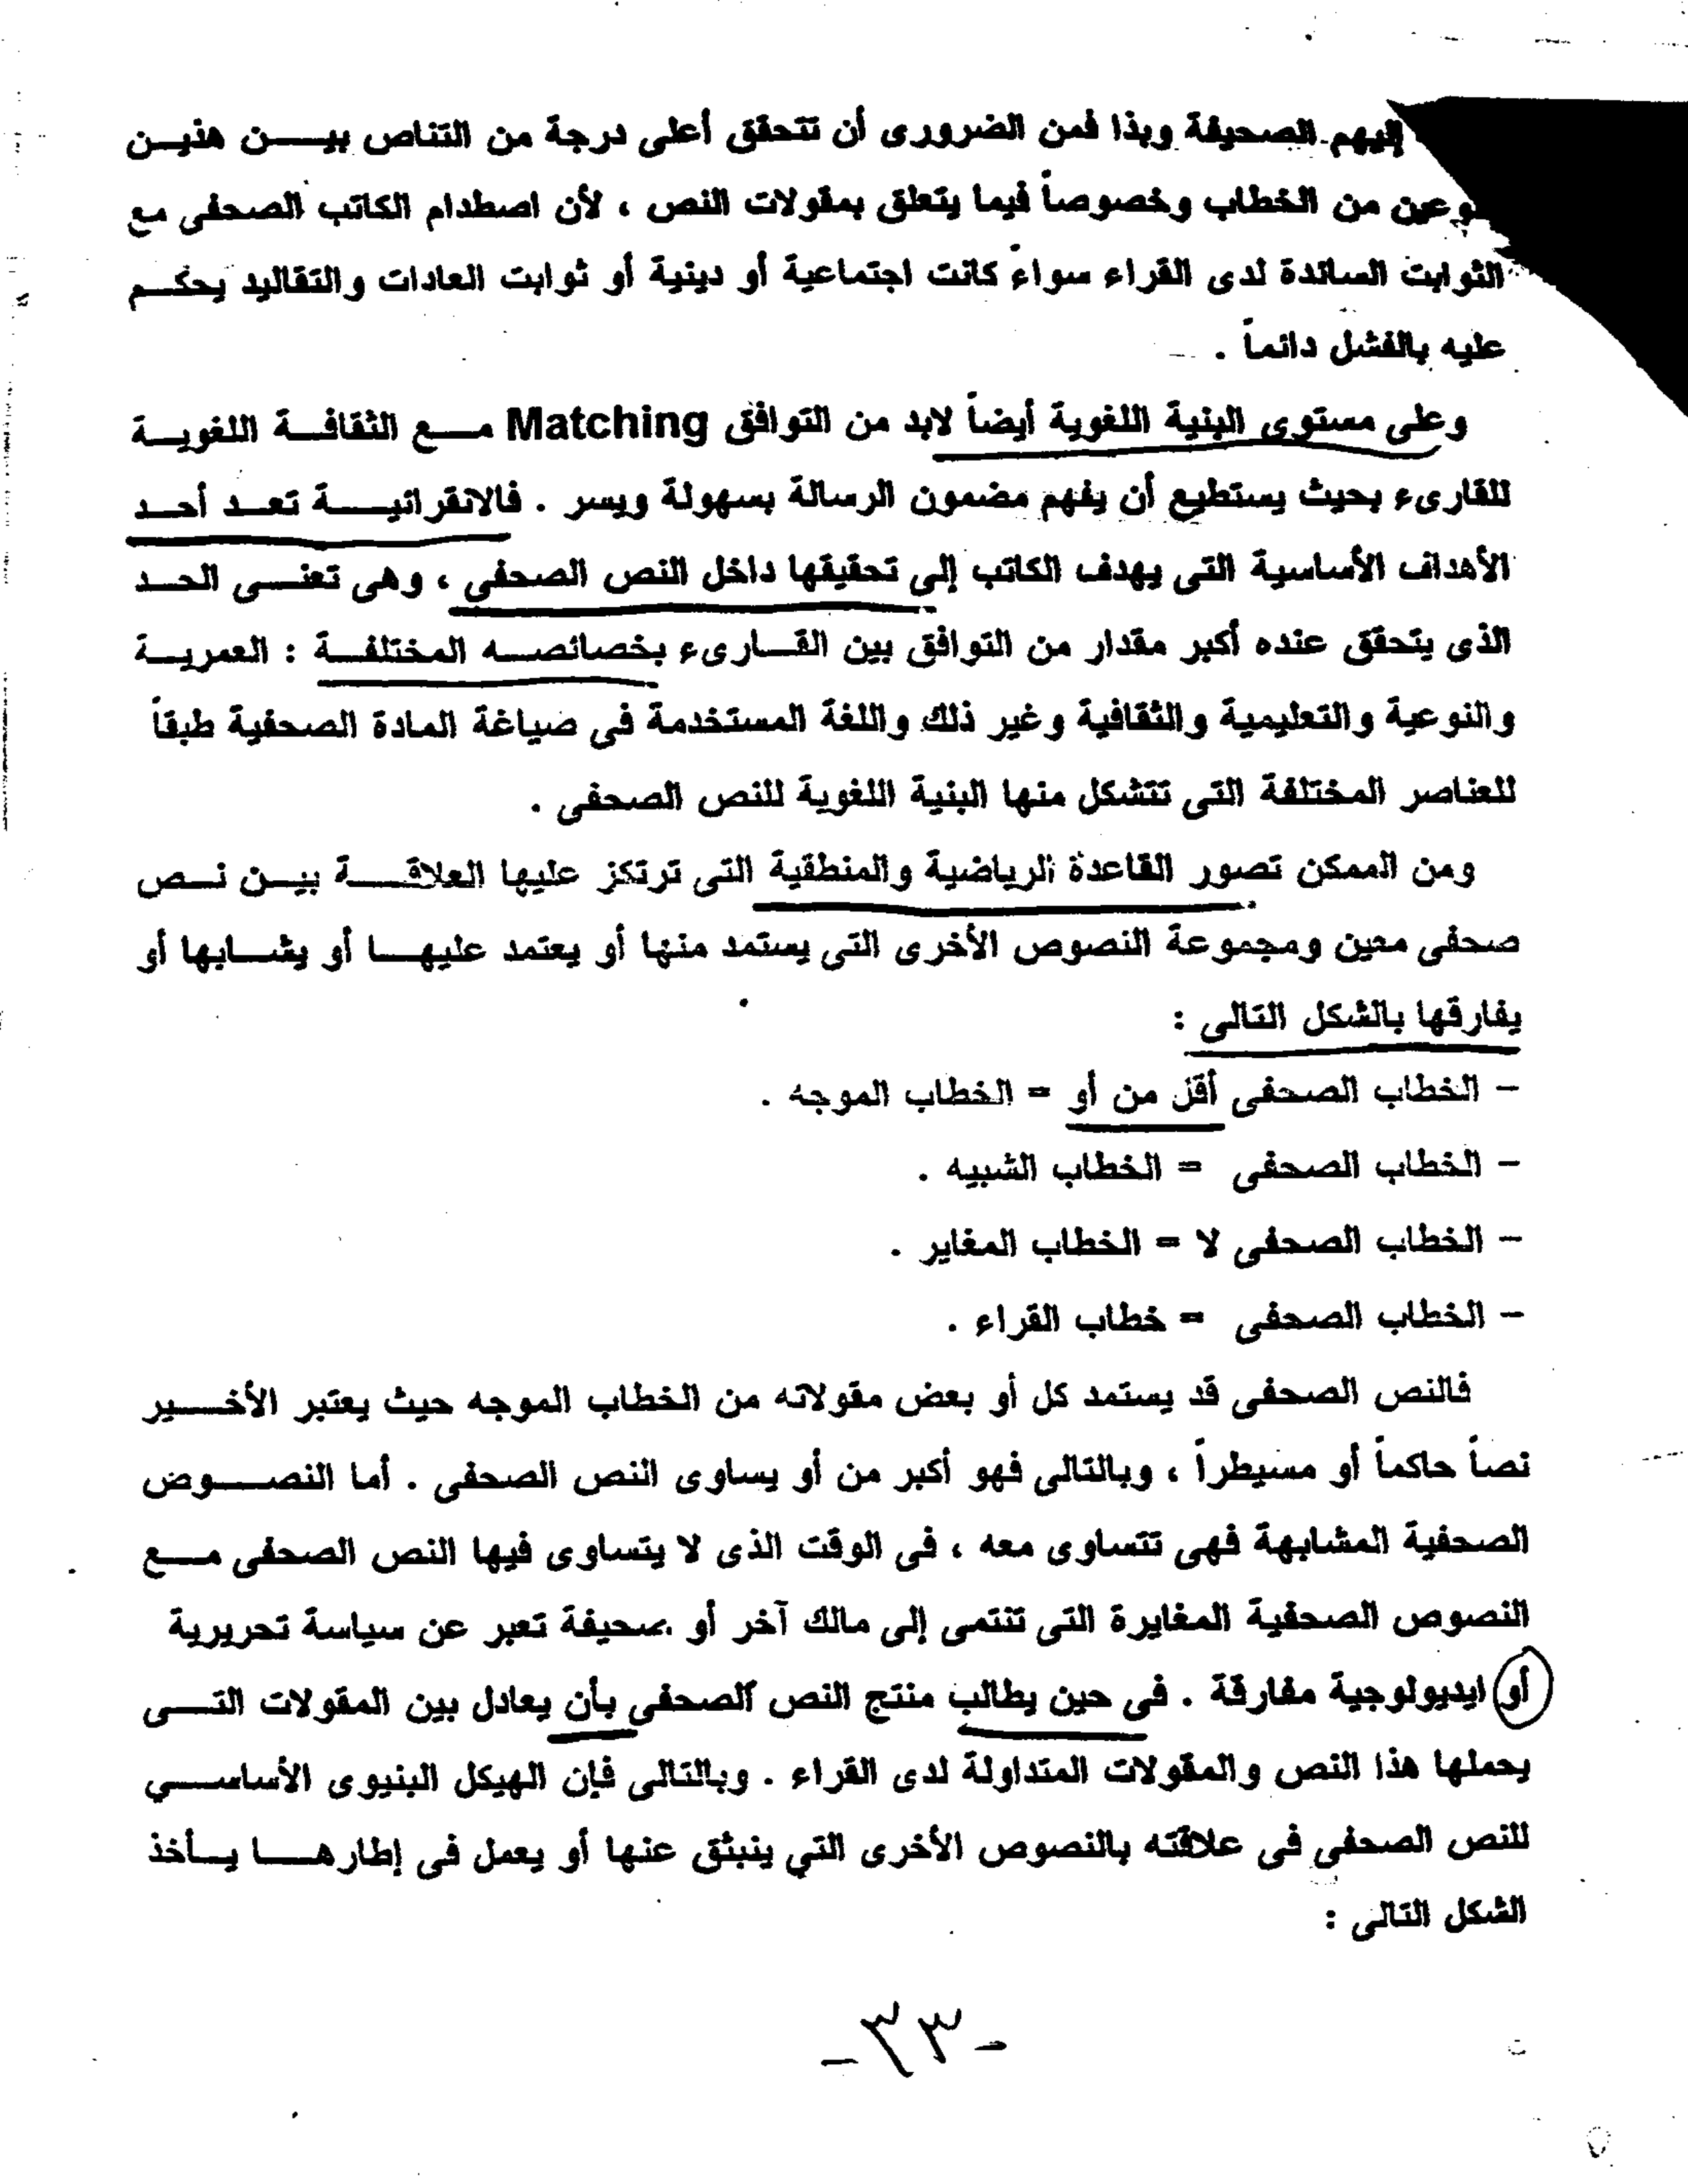 إليهم الصحيفة وبذا فمن الضرورى أن تتحقق أعلى درجة من التناص بين هذين
من الخطاب وخصوصاً فيما يتعلق بمقولات النص ، لأن اصطدام الكاتب الصحفى مع
الثوابت السائدة لدى القراء سواء كانت اجتماعية أو دينية أو ثوابت العادات والتقاليد يحكم
عليه بالفشل دائماً .
وعلى مستوى البنية اللغوية أيضاً لابد من التوافق Matching مع الثقافة اللغوية
للقارىء بحيث يستطيع أن يفهم مضمون الرسالة بسهولة ويسر . فالانقرائية تعد أحد
الأهداف الأساسية التى يهدف الكاتب إلى تحقيقها داخل النص الصحفى ، وهى تعنى الحد
الذى يتحقق عنده أكبر مقدار من التوافق بين القارىء بخصائصه المختلفة : العمرية
والنوعية والتعليمية والثقافية وغير ذلك واللغة المستخدمة فى صياغة المادة الصحفية طبقاً
للعناصر المختلفة التى تتشكل منها البنية اللغوية للنص الصحفى .
ومن الممكن تصور القاعدة الرياضية والمنطقية التى ترتكز عليها العلاقة بين نص
صحفى معين ومجموعة النصوص الأخرى التى يستمد منها أو يعتمد عليها أو يشابها أو
يفارقها بالشكل التالى :
– الخطاب الصحفى أقل من أو = الخطاب الموجه .
– الخطاب الصحفى = الخطاب الشبيه .
– الخطاب الصحفى لا = الخطاب المغاير .
– الخطاب الصحفى = خطاب القراء .
فالنص الصحفى قد يستمد كل أو بعض مقولاته من الخطاب الموجه حيث يعتبر الأخير
نصاً حاكماً أو مسيطراً ، وبالتالى فهو أكبر من أو يساوى النص الصحفى . أما النصوص
الصحفية المشابهة فهى تتساوى معه ، فى الوقت الذى لا يتساوى فيها النص الصحفى مع
النصوص الصحفية المغايرة التى تنتمى إلى مالك آخر أو صحيفة تعبر عن سياسة تحريرية
أو ايديولوجية مفارقة . فى حين يطالب منتج النص الصحفى بأن يعادل بين المقولات التى
يحملها هذا النص والمقولات المتداولة لدى القراء . وبالتالى فإن الهيكل البنيوى الأساسي
للنص الصحفى فى علاقته بالنصوص الأخرى التي ينبثق عنها أو يعمل فى إطارها يأخذ
الشكل التالى :
-٣٣-